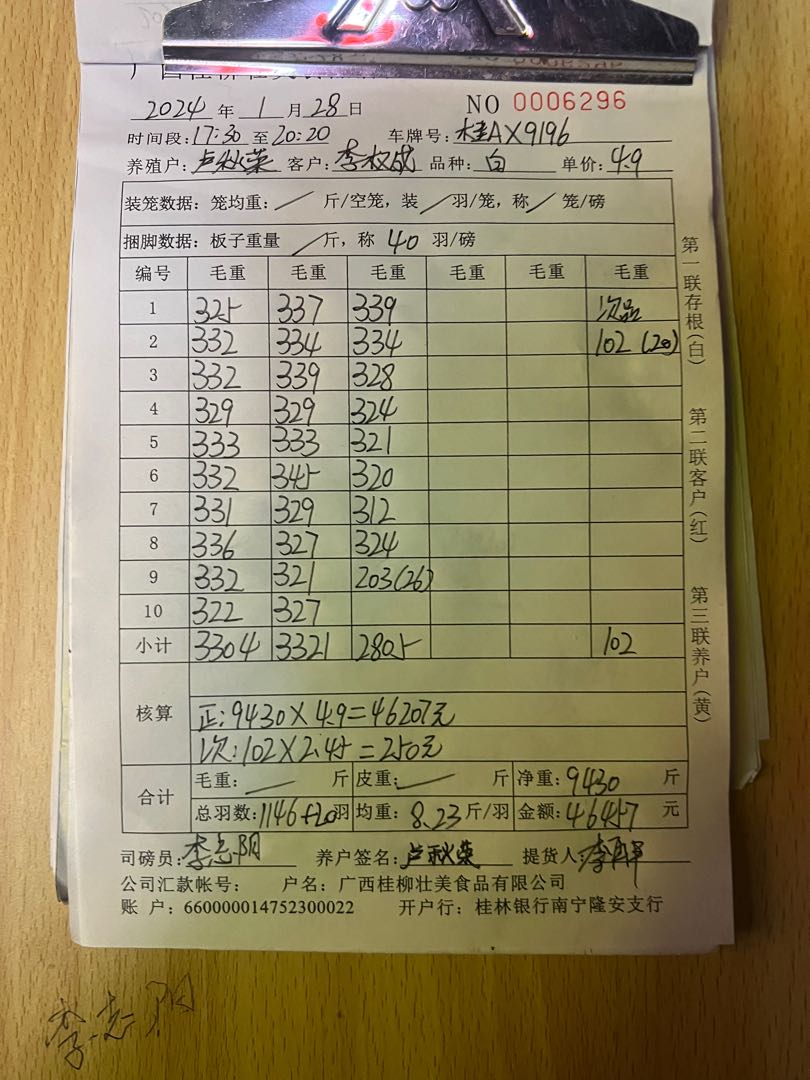 2024 年 1 月 28 日 NO 0006296
时间段: 17:30 至 20:20 车牌号: 桂AX9196
养殖户: 卢秋荣 客户: 李权成 品种: 白 单价: 4.9
装笼数据: 笼均重: / 斤/空笼, 装 / 羽/笼, 称 / 笼/磅
捆脚数据: 板子重量 / 斤, 称 40 羽/磅
编号 毛重 毛重 毛重 毛重 毛重 毛重
1 325 337 339 次品
2 332 334 334 102 (20)
3 332 339 328
4 329 329 324
5 333 333 321
6 332 345 320
7 331 329 312
8 336 327 324
9 332 321 203(26)
10 322 327
小计 3304 3321 2805 102
核算
正: 9430×4.9=46207元
次: 102×2.45=250元
合计
毛重: / 斤 皮重: / 斤 净重: 9430 斤
总羽数: 1146+20羽 均重: 8.23 斤/羽 金额: 46457 元
司磅员: 李志阴 养户签名: 卢秋荣 提货人:
公司汇款帐号: 户名: 广西桂柳壮美食品有限公司
账 户: 660000014752300022 开户行: 桂林银行南宁隆安支行
第一联存根(白)
第二联客户(红)
第三联养户(黄)
李志阴